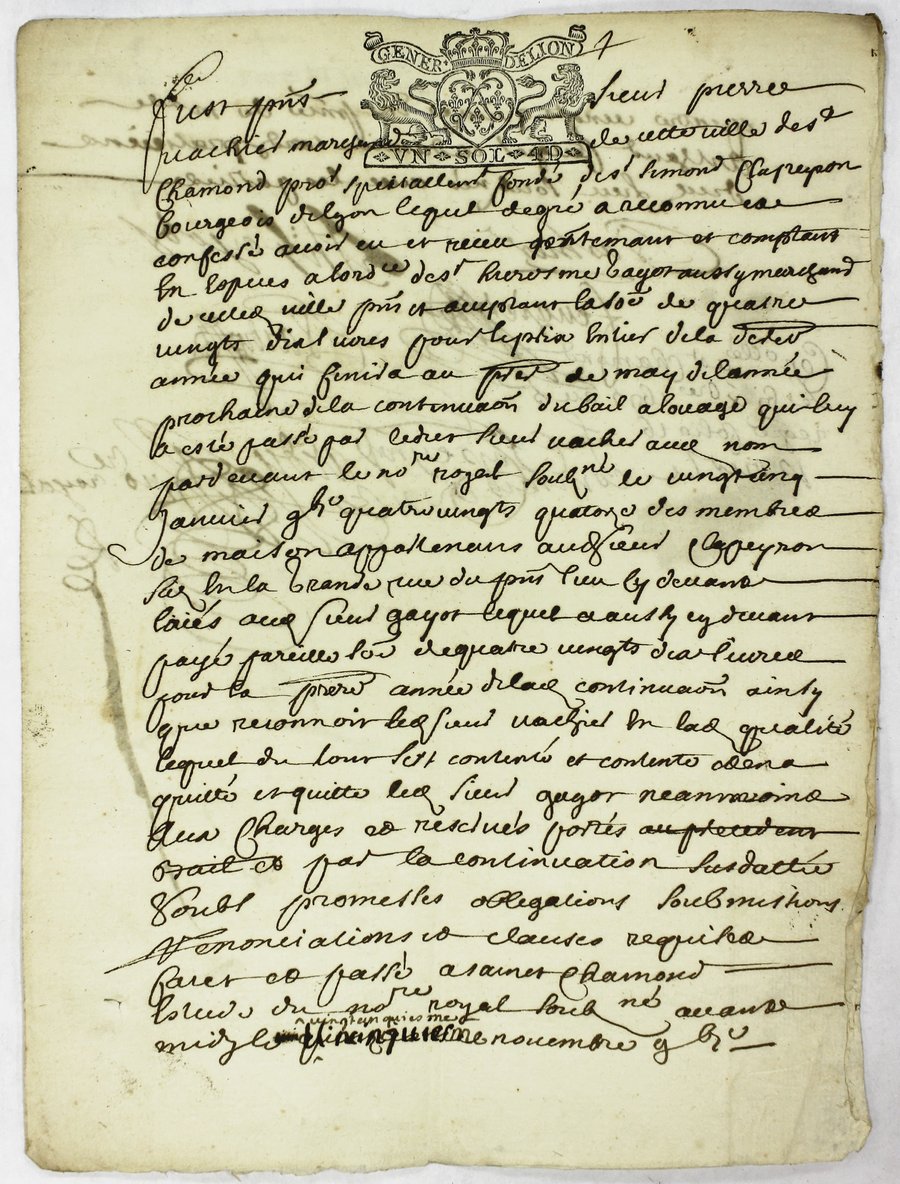 GENER DELION
VN SOL 4D
Fust pnt sieur pierre
vachier marchand de cette ville de st
Chamond procr speciallemt fondé de sr Simond Clapeyron
bourgeois de lyon lequel de gré a reconnu et
confessé avoir eu et receu presentemant et comptant
En Espices a lordre de sr hierosme Gayot aussy marchand
de cette ville pnt et acceptant la sõe de quatre
vingts dix livres pour le prix Entier de la
année qui finira au pier de may de lannée
prochaine de la continuaõn du bail a louage qui luy
a esté passé par ledict sieur vachier aud nom
pardevant le nore royal soubné le vingtcinq
Janvier quatrevingts quatorze des membres
de maison appartenans aud sieur Clapeyron
size En la Grande rue du pnt lieu cy devant
laiés aud sieur gayot lequel a aussy cy devant
payé pareille sõe de quatre vingts dix livres
pour la piere année de lad continuaõn ainsy
que reconnoit led sieur vachier En lad qualité
lequel du tout sest contenté et contente et en a
quitté et quitte led sieur gayot neanmoins
aux Charges et reserves portés au precedent
Bail et par la continuation susdattée
Soubs promesses obligations soubmissions
Renonciations et clauses requises
faict et passé a sainct Chamond
Estude du nore royal soubné avant
vingtcinquiesme
midy le novembre